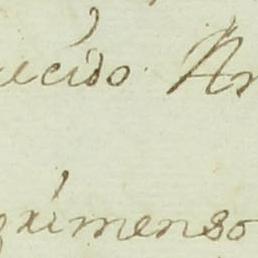 ecido An
ximenso